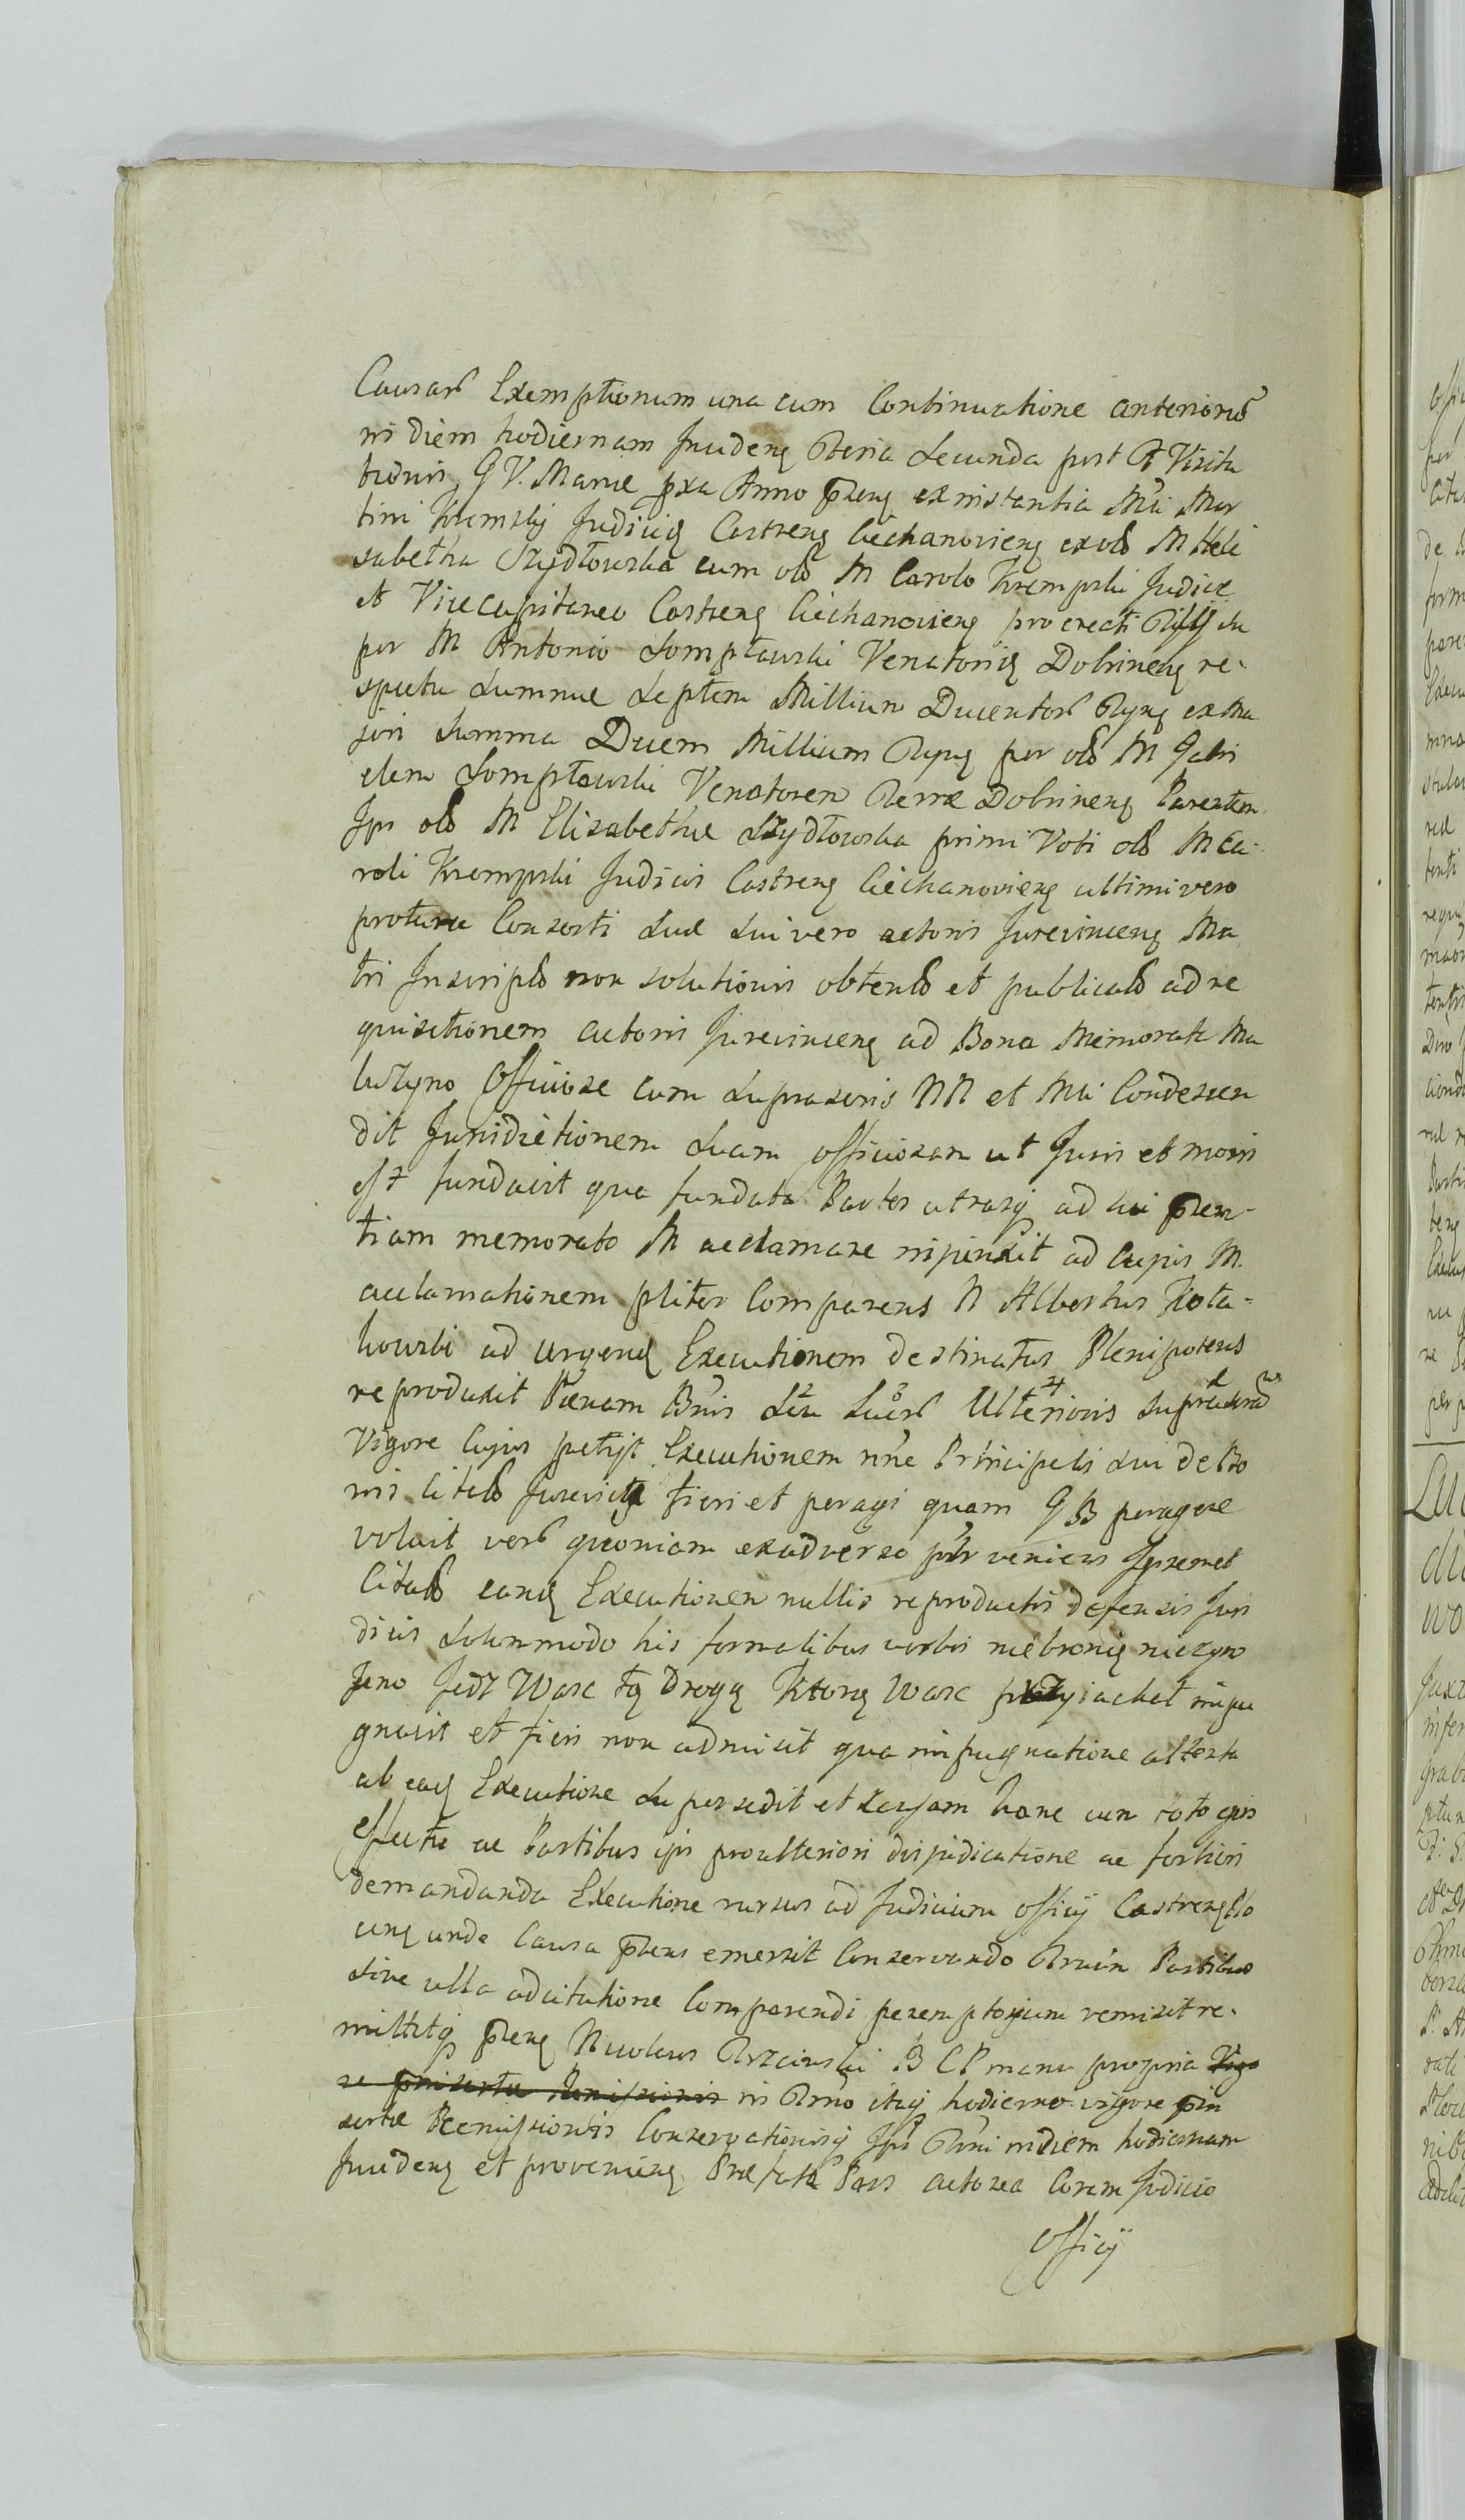 Causar Exemptionum una cum Continuatione anterior
in diem hodiernam Inciden Feria Secunda post F Visita
tionis G V. Mariæ pxa Anno pten ex instantia Mci Mar
tini Krempskj Judicis Castren Ciechanovien exolo M Heli
sabetha Szydłowska cum olo M Carolo Krempski Judice
et Vicecapitaneo Castren Ciechanovien procreati Filij su
per M Antonio Sompławski Venatoris Dobrinen re-
spectu Summæ Septem Millium Ducentor Flpn ex Ma
jori Summa Decem Millium Flpn per olo M Gabri
elem Sompławski Venatorem Terræ Dobrinen Parentem
Ips olo M Elizabethæ Szydłowska primi Voti olo M Ca-
roli Krempski Judicis Castren Ciechanovien ultimi vero
pro tunc Consorti Suæ Sui vero actoris Jurevincen Ma
tri Inscript non solutionis obtent et publicat ad re
quisitionem actoris Jurevincen ad Bona Memorata Ma
luzyno Officiose cum Suprascris NN et Mli Condescen
dit Jurisdictionem Suam officiosam ut Juris et moris
est fundavit qua fundata Partes utrasq ad sui præsen-
tiam memorato M acclamare injunxit ad cujus M.
acclamationem pliter Comparens N Albertus Kota-
howski ad urgend Executionem destinatus Plenipotens
reproduxit Pænam Bnis Ulterioris
Vigore Cujus petijt Executionem nne Principalis Sui de Bo
nis citato Jurevict fieri et peragi quam G B peragere
voluit ver quoniam ex adverso pltr veniens Ipsemet
Citat eand Executionem nullis reproductis defensis Juri
dicis Solummodo his formalibus verbis niebronię nieczyn
Jeno Jedz Wasc tą Drogą Ktorą Wasc przyiachał impu
gnavit et fieri non admisit qua impugnatione attenta
ab ead Executione Supersedit et Causam hanc cum toto ejus
effectu ac Partibus ips pro ulteriori dijudicatione ac fortiori
demandanda Executione rursus ad Judicium Officij Castren Plo
cen unde Causa ptens emersit Conservando Trmin Partibus
sine ulla adcitatione Comparendi peremptorium remisit re-
mittitq pten Nicolaus B C P manu propria Vigo
re præinsertæ Remissionis in Trmo itaq hodierno vigore præin
sertæ Remissionis Conservationisq Ips Trmi in diem hodiernam
Inciden et provenien Præfata Pars actorea Coram Judicio
Officij